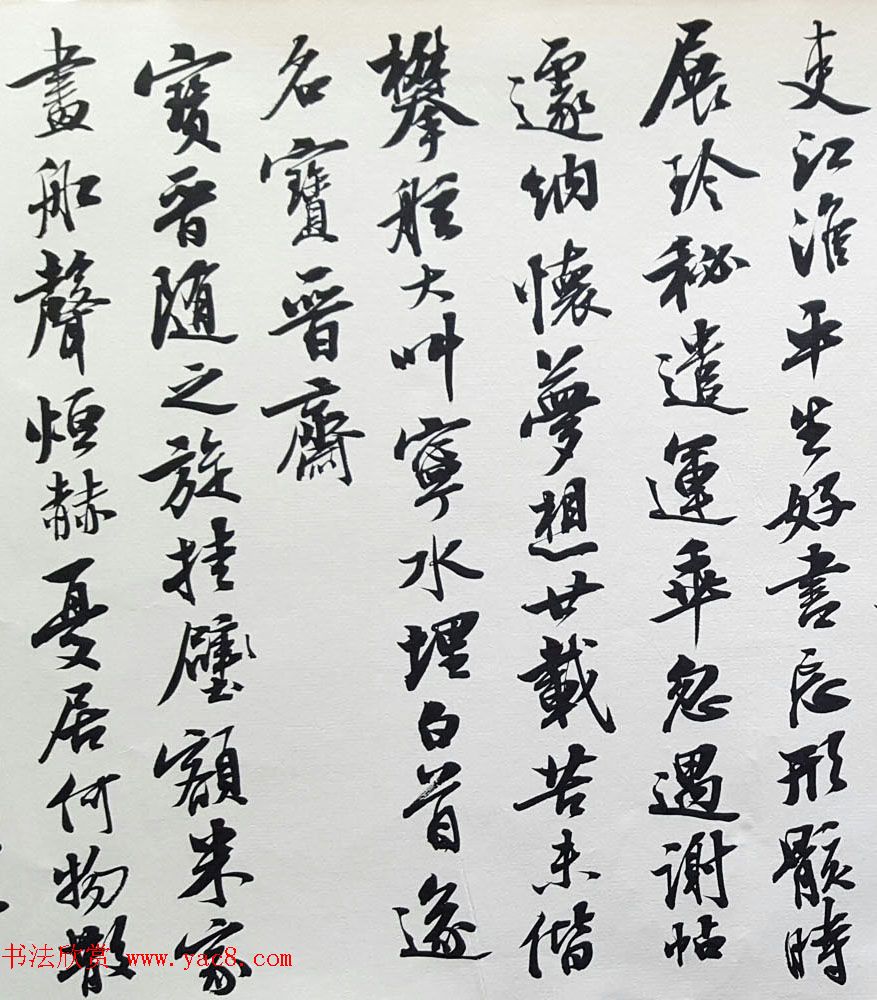 吏江淮平生好書忘形骸時
展珍秘遣運乖忽遇謝帖
遽納懷夢想廿載苦未偕
攀舷大叫寧水埋白首遂
名寶晉齋
寶晉隨之旋挂壁額米家
畫船聲烜赫憂居何物散
书法欣赏 www.yac8.com